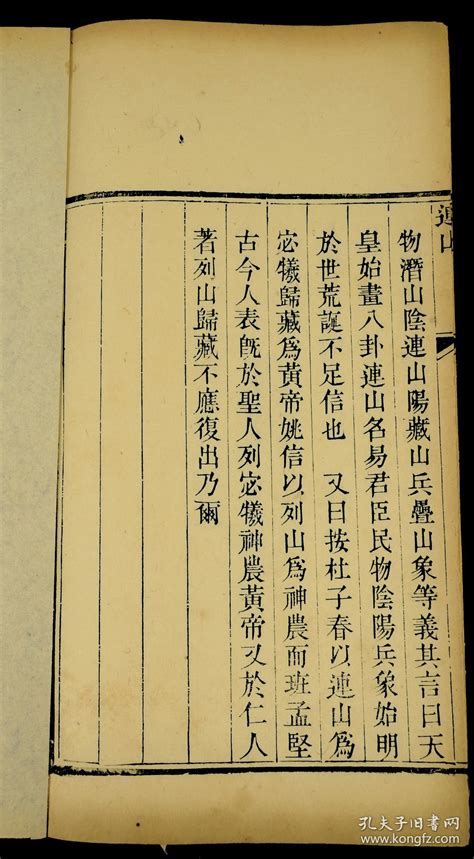 連山
物潛山陰連山陽藏山兵疊山象等義其言曰天
皇始畫八卦連山名易君臣民物陰陽兵象始明
於世荒誕不足信也　又曰按杜子春以連山爲
宓犧歸藏爲黃帝姚信以列山爲神農而班孟堅
古今人表旣於聖人列宓犧神農黃帝又於仁人
著列山歸藏不應復出乃爾
孔夫子旧书网
www.kongfz.com